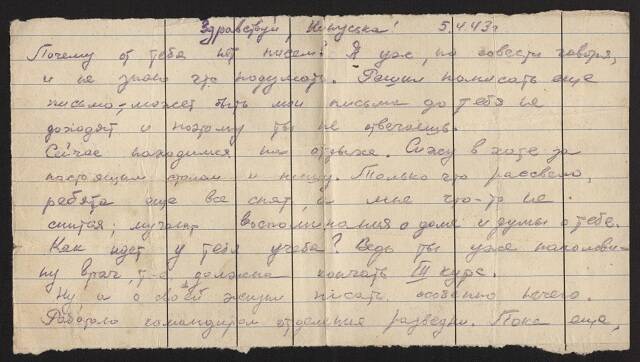 Здравствуй, Кинуська! 5.4.43г
Почему от тебя нет писем? Я уж, по совести говоря,
и не знаю что подумать. Решил написать еще
письмо, может быть мои письма до тебя не
доходят и поэтому ты не отвечаешь.
Сейчас находимся на отдыхе. Сижу в хате за
настоящим столом и пишу. Только что рассвело,
ребята еще все спят, а мне что-то не
спится, мучают воспоминания о доме и думы о тебе.
Как идет у тебя учеба? Ведь ты уже наполови-
ну врач, т.е. должна кончать III курс.
Ну а о своей жизни писать особенно нечего.
Работаю командиром отделения разведки. Пока еще,